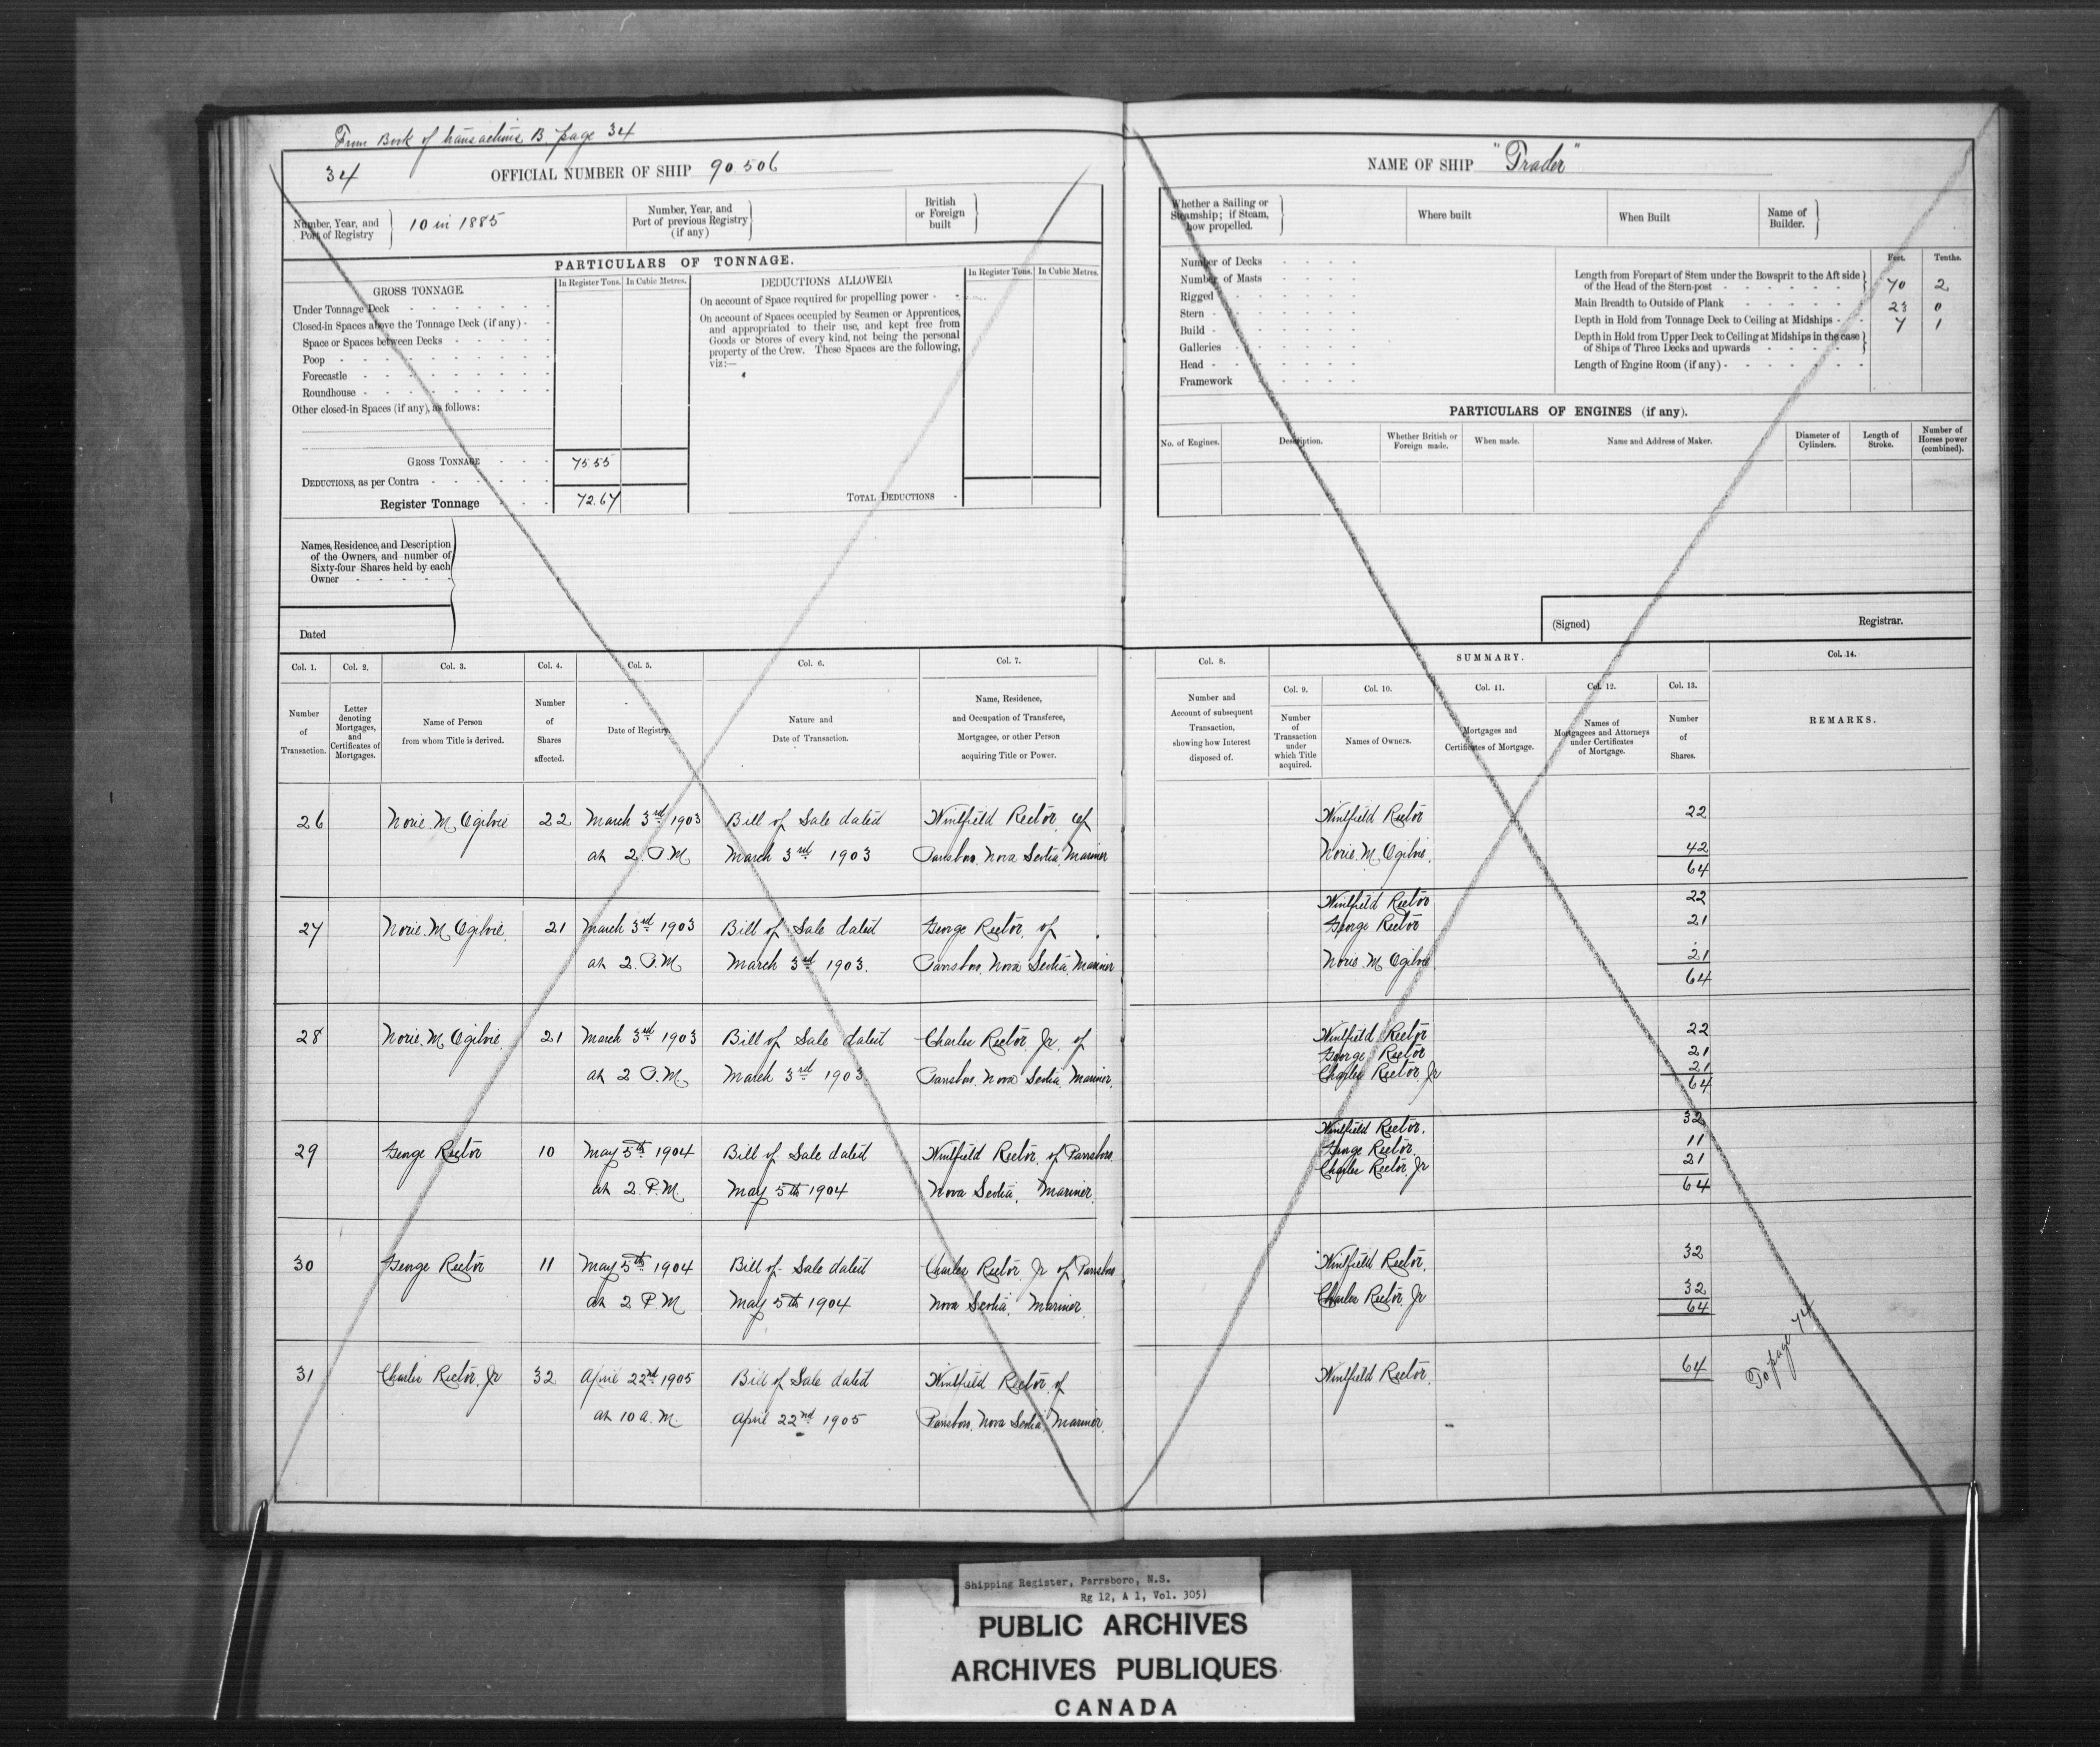 From Book of transactions B page 34
34
OFFICIAL NUMBER OF SHIP 90.506
Number, Year, and Port of Registry
10 in 1885
Number, Year, and Port of previous Registry (if any)
British or Foreign built
PARTICULARS OF TONNAGE.
GROSS TONNAGE.
In Register Tons. In Cubic Metres.
Under Tonnage Deck
Closed-in Spaces above the Tonnage Deck (if any)
Space or Spaces between Decks
Poop
Forecastle
Roundhouse
Other closed-in Spaces (if any), as follows:
GROSS TONNAGE 75.55
DEDUCTIONS, as per Contra
Register Tonnage 72.67
DEDUCTIONS ALLOWED.
In Register Tons. In Cubic Metres.
On account of Space required for propelling power
On account of Spaces occupied by Seamen or Apprentices,
and appropriated to their use, and kept free from
Goods or Stores of every kind, not being the personal
property of the Crew. These Spaces are the following,
viz:—
TOTAL DEDUCTIONS
Names, Residence, and Description
of the Owners, and number of
Sixty-four Shares held by each
Owner
Dated
Col. 1. Col. 2. Col. 3. Col. 4. Col. 5. Col. 6. Col. 7.
Number of Transaction.
Letter denoting Mortgages, and Certificates of Mortgages.
Name of Person from whom Title is derived.
Number of Shares affected.
Date of Registry.
Nature and Date of Transaction.
Name, Residence, and Occupation of Transferee, Mortgagee, or other Person acquiring Title or Power.
26 Norie. M. Ogilvie 22 March 3rd 1903 Bill of Sale dated Winfield Rector of
at 2. P.M. March 3rd 1903 Parrsboro, Nova Scotia, Mariner
27 Norie. M. Ogilvie. 21 March 3rd 1903 Bill of Sale dated George Rector, of
at 2. P.M. March 3rd 1903. Parrsboro, Nova Scotia, Mariner
28 Norie. M. Ogilvie. 21 March 3rd 1903 Bill of Sale dated Charles Rector, Jr. of
at 2 P.M. March 3rd 1903. Parrsboro, Nova Scotia, Mariner.
29 George Rector 10 May 5th 1904 Bill of Sale dated Winfield Rector, of Parrsboro.
at 2. P.M. May 5th 1904 Nova Scotia, Mariner.
30 George Rector 11 May 5th 1904 Bill of Sale dated Charles Rector, Jr of Parrsboro
at 2 P.M May 5th 1904 Nova Scotia, Mariner.
31 Charles Rector, Jr 32 April 22nd 1905 Bill of Sale dated Winfield Rector, of
at 10 a.M. April 22nd 1905 Parrsboro, Nova Scotia, Mariner.
NAME OF SHIP "Trader"
Whether a Sailing or Steamship; if Steam, how propelled.
Where built
When Built
Name of Builder.
Number of Decks
Number of Masts
Rigged
Stern
Build
Galleries
Head
Framework
Feet. Tenths.
Length from Forepart of Stem under the Bowsprit to the Aft side
of the Head of the Stern-post 70 2
Main Breadth to Outside of Plank 23 0
Depth in Hold from Tonnage Deck to Ceiling at Midships 7 1
Depth in Hold from Upper Deck to Ceiling at Midships in the case
of Ships of Three Decks and upwards
Length of Engine Room (if any)
PARTICULARS OF ENGINES (if any).
No. of Engines.
Description.
Whether British or Foreign made.
When made.
Name and Address of Maker.
Diameter of Cylinders.
Length of Stroke.
Number of Horses power (combined).
(Signed) Registrar.
Col. 8. SUMMARY. Col. 14.
Col. 9. Col. 10. Col. 11. Col. 12. Col. 13.
Number and Account of subsequent Transaction, showing how Interest disposed of.
Number of Transaction under which Title acquired.
Names of Owners.
Mortgages and Certificates of Mortgage.
Names of Mortgagees and Attorneys under Certificates of Mortgage.
Number of Shares.
REMARKS.
Winfield Rector 22
Norie. M. Ogilvie. 42
64
Winfield Rector 22
George Rector 21
Norie. M. Ogilvie 21
64
Winfield Rector 22
George Rector 21
Charles Rector, Jr 21
64
Winfield Rector. 32
George Rector. 11
Charles Rector, Jr 21
64
Winfield Rector. 32
Charles Rector, Jr 32
64
Winfield Rector. 64
To page 74
Shipping Register, Parrsboro, N.S.
Rg 12, A 1, Vol. 305)
PUBLIC ARCHIVES
ARCHIVES PUBLIQUES
CANADA